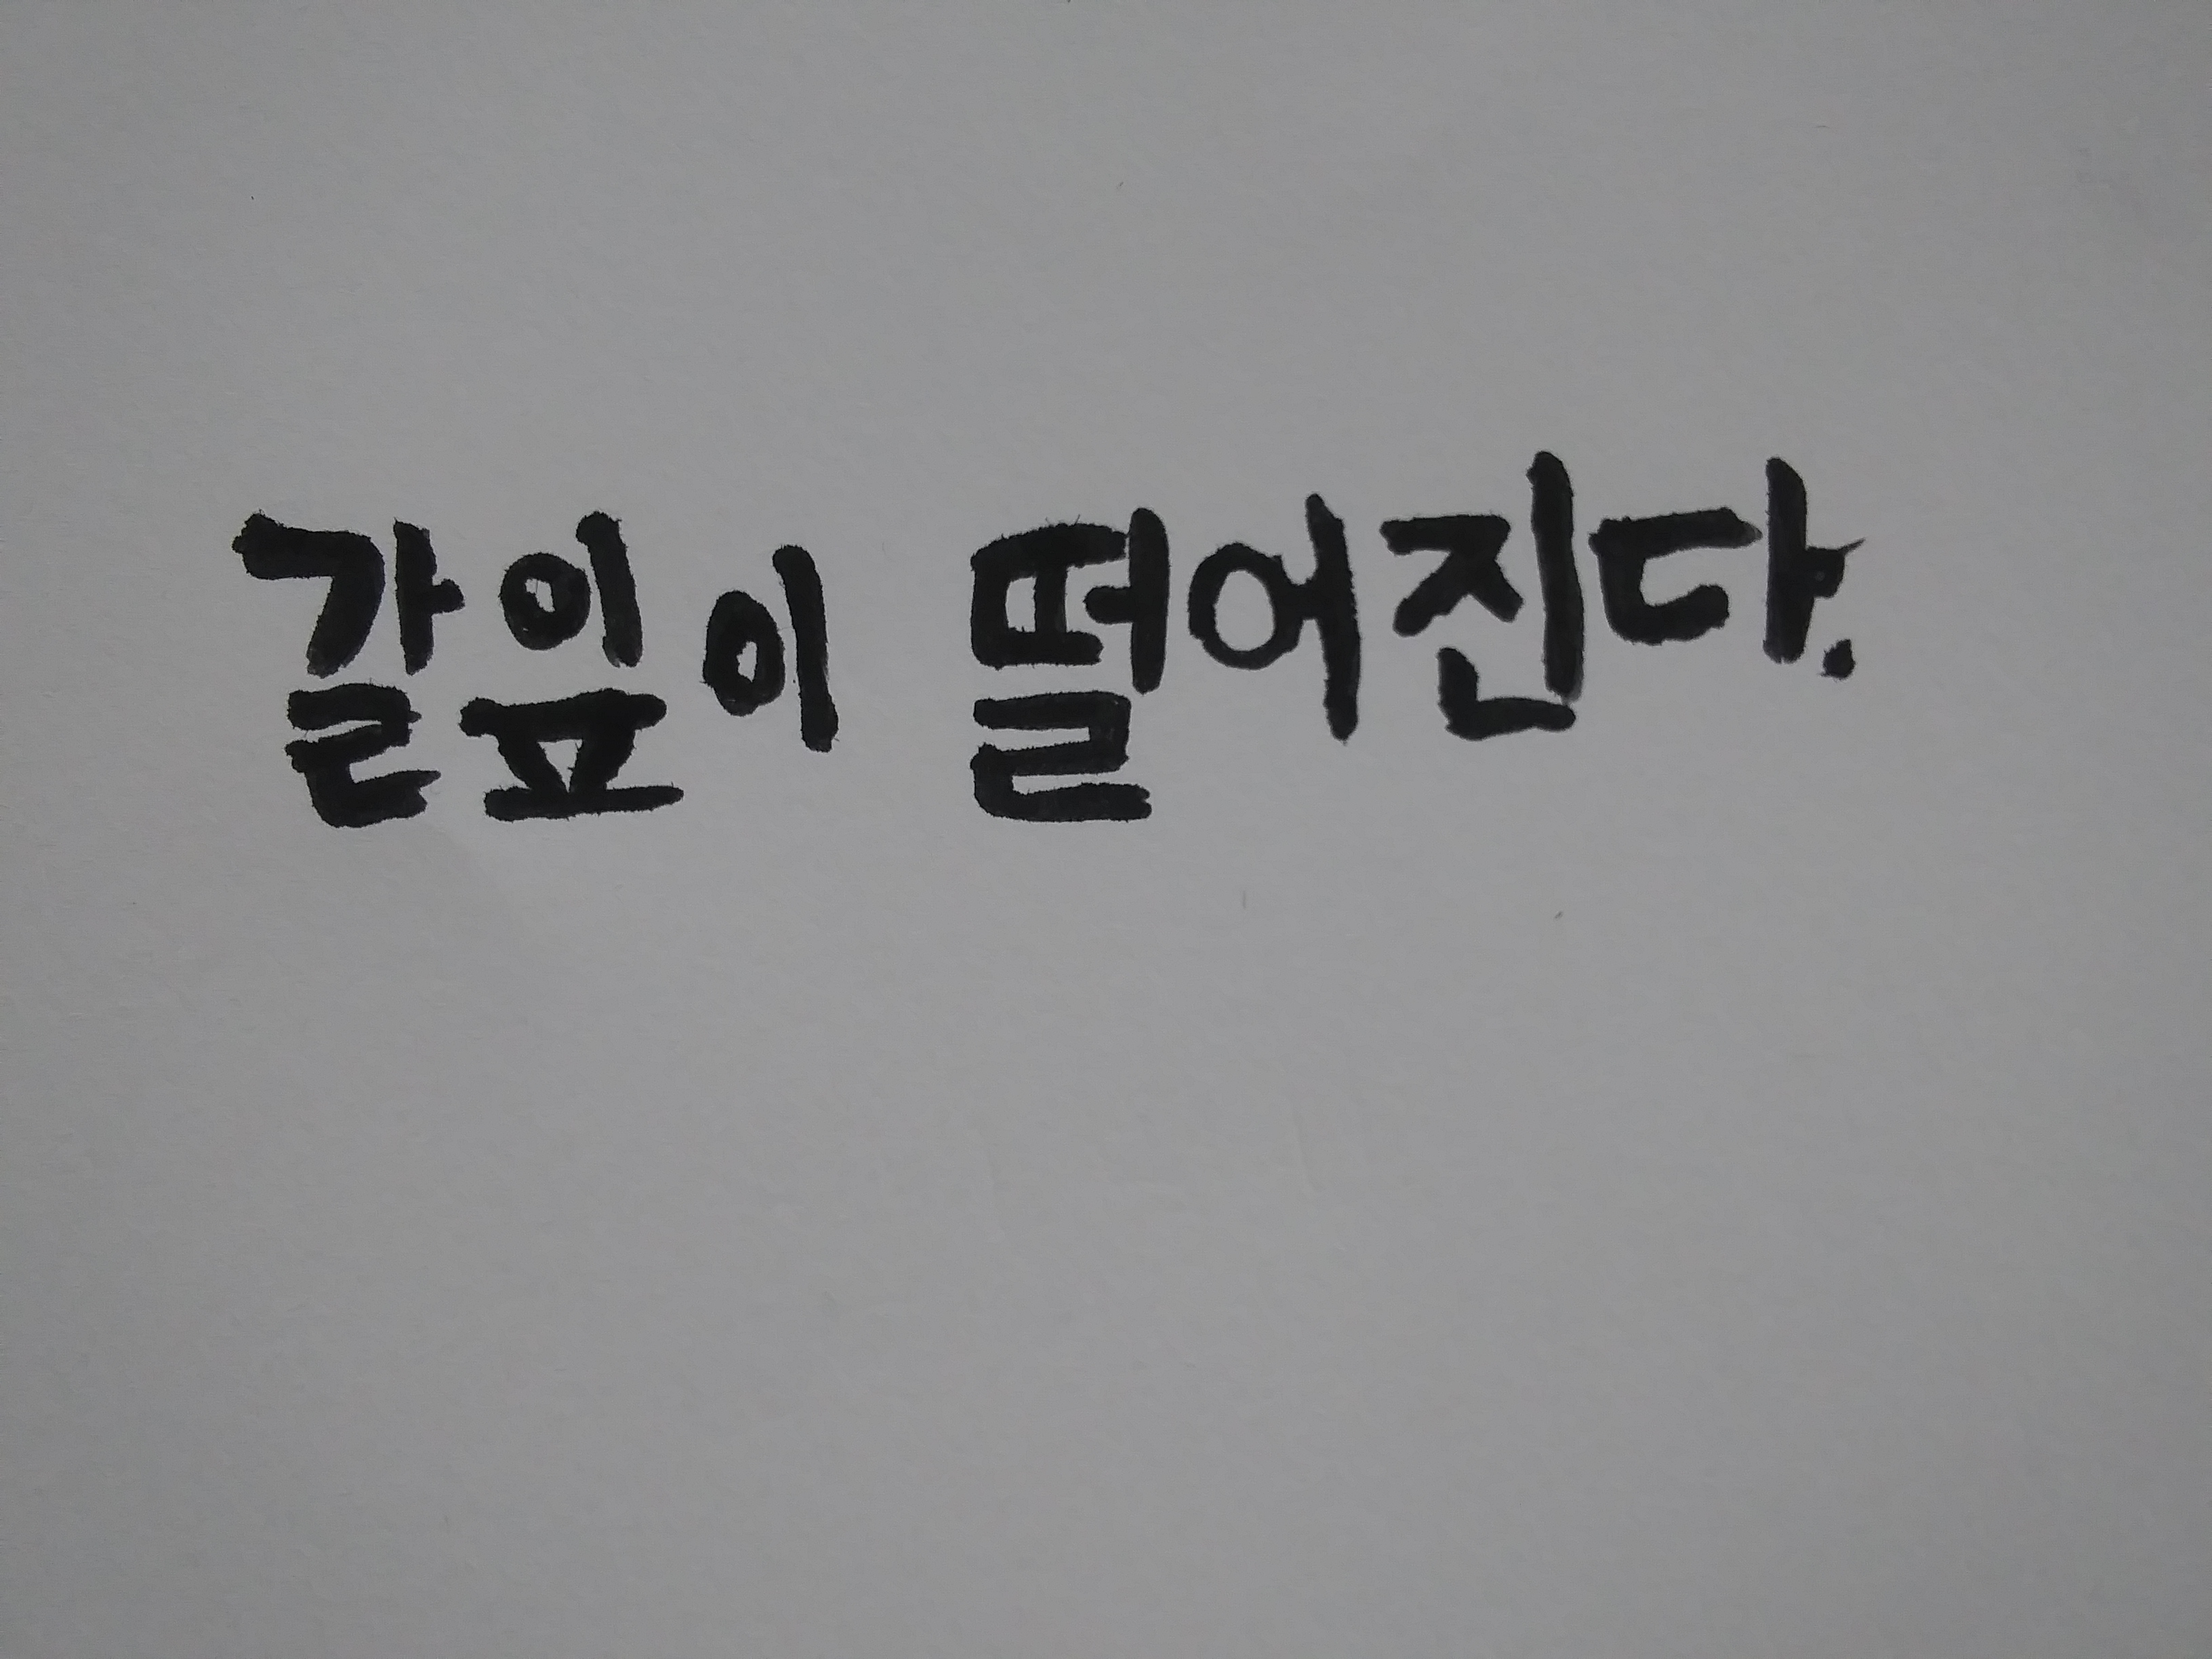 갈잎이 떨어진다.